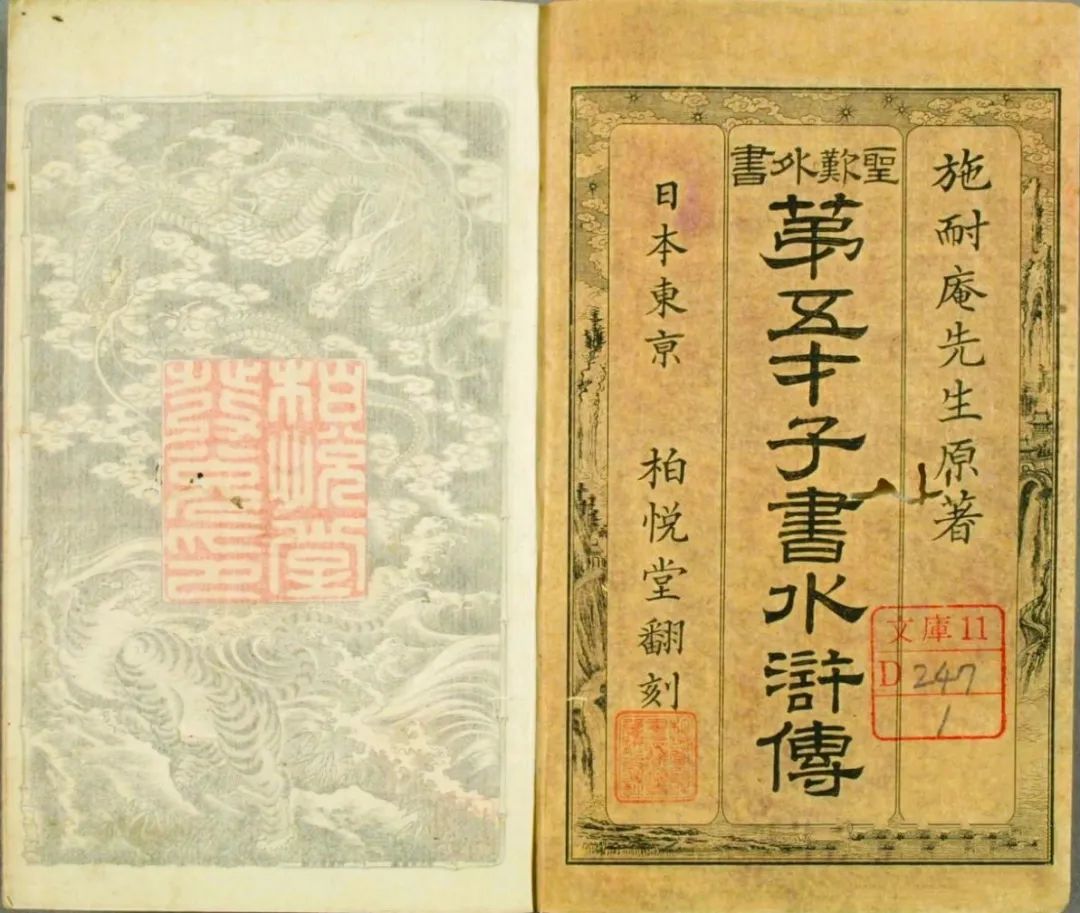 施耐庵先生原著
聖歎外書
苐五才子書水滸傳
日本東亰 柏悦堂翻刻
文庫11
D 247
1
柏悦堂
發兌印